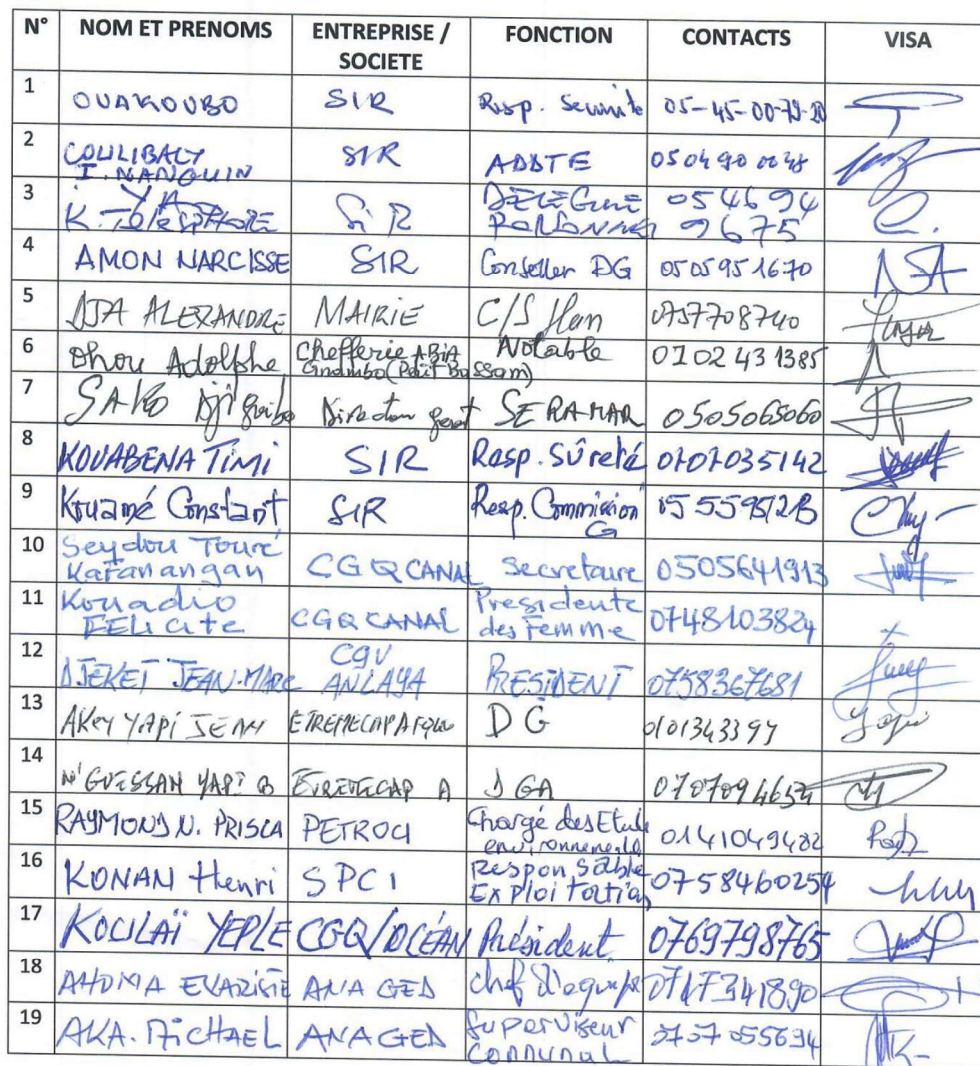 N° NOM ET PRENOMS ENTREPRISE / SOCIETE FONCTION CONTACTS VISA
1 OUAKOUBO SIR Resp. Securité 05-45-00-79-20
2 COULIBALY I. NANGUIN SIR ADDTE 0504900048
3 YA K. Télesphore SiR DELEGUE PERSONNEL 054694 9675
4 AMON NARCISSE SIR Conseller DG 0505951670
5 AJA ALEXANDRE MAIRIE C/S 0757708740
6 Ohou Adolphe Chefferie ABIA Gnambo (Petit Bassam) Notable 0102431385
7 SAKO Directeur gerant SERAMAR 0505065060
8 KOUABENA TIMI SIR Resp. Sûreté 0707035142
9 Kouamé Constant SIR Resp. Commission
10 Seydou Touré Kafanangan CGQ CANAL Secretaire 0505641913
11 Kouadio FELicite CGQ CANAL Presidente des Femme 0748103824
12 DJEKET JEAN-MARC CGV ANLAYA PRESIDENT 0758367681
13 AKey YAPi JEAN DG 0101343397
14 N'GUESSAN YAPI B DGA 0707094654
15 RAYMOND N. PRISCA PETROCI Chargé des Etude environnementale 0141049482
16 KONAN Henri SPCI Responsable Exploitation 0758460254
17 KOULAÏ YEPLE CGQ/OCÉAN Président 0769798765
18 AHOMA EVARISTE ANAGED chef d'equipe 0747341890
19 AKA. MiCHAEL ANAGED Superviseur Communal